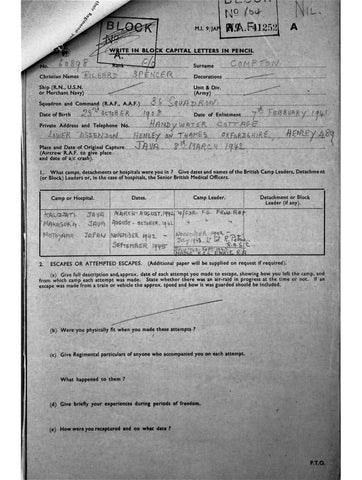 BLOCK
M.I. 9/JAP
BLOCK
No 104
R.A.F. 41252
NIL.
A
A.
WRITE IN BLOCK CAPITAL LETTERS IN PENCIL.
No. 60898 Rank F/O Surname COMPTON
Christian Names RICHARD SPENCER Decorations
Ship (R.N., U.S.N. or Merchant Navy) Unit (Army) Div.
Squadron and Command (R.A.F., A.A.F.) 36 SQUADRON.
Date of Birth 23rd OCTOBER 1908 Date of Enlistment 7th FEBRUARY 1941
Private Address and Telephone No. HANDYWATER COTTAGE
LOWER ASSENDON HENLEY ON THAMES OXFORDSHIRE. HENLEY 489
Place and Date of Original Capture JAVA 8th MARCH 1942
(Aircrew R.A.F. to give place and date of a/c crash).
1. What camps, detachments or hospitals were you in? Give dates and names of the British Camp Leaders, Detachment (or Block) Leaders or, in the case of hospitals, the Senior British Medical Officers.
Camp or Hospital. Dates. Camp Leader. Detachment or Block Leader (if any).
KALIDJATI JAVA MARCH-AUGUST, 1942 W/CDR. R.A.F.
MAKASURA JAVA AUGUST - OCTOBER 1942
MOTOYAMA JAPAN NOVEMBER 1942 - SEPTEMBER 1945 NOVEMBER 1942 -
2. ESCAPES OR ATTEMPTED ESCAPES. (Additional paper will be supplied on request if required).
(a) Give full description and approx. date of each attempt you made to escape, showing how you left the camp, and from which camp each attempt was made. State whether there was an air-raid in progress at the time or not. If an escape was made from a train or vehicle the approx. speed and how it was guarded should be included.
(b) Were you physically fit when you made these attempts?
(c) Give Regimental particulars of anyone who accompanied you on each attempt.
What happened to them?
(d) Give briefly your experiences during periods of freedom.
(e) How were you recaptured and on what date?
P.T.O.